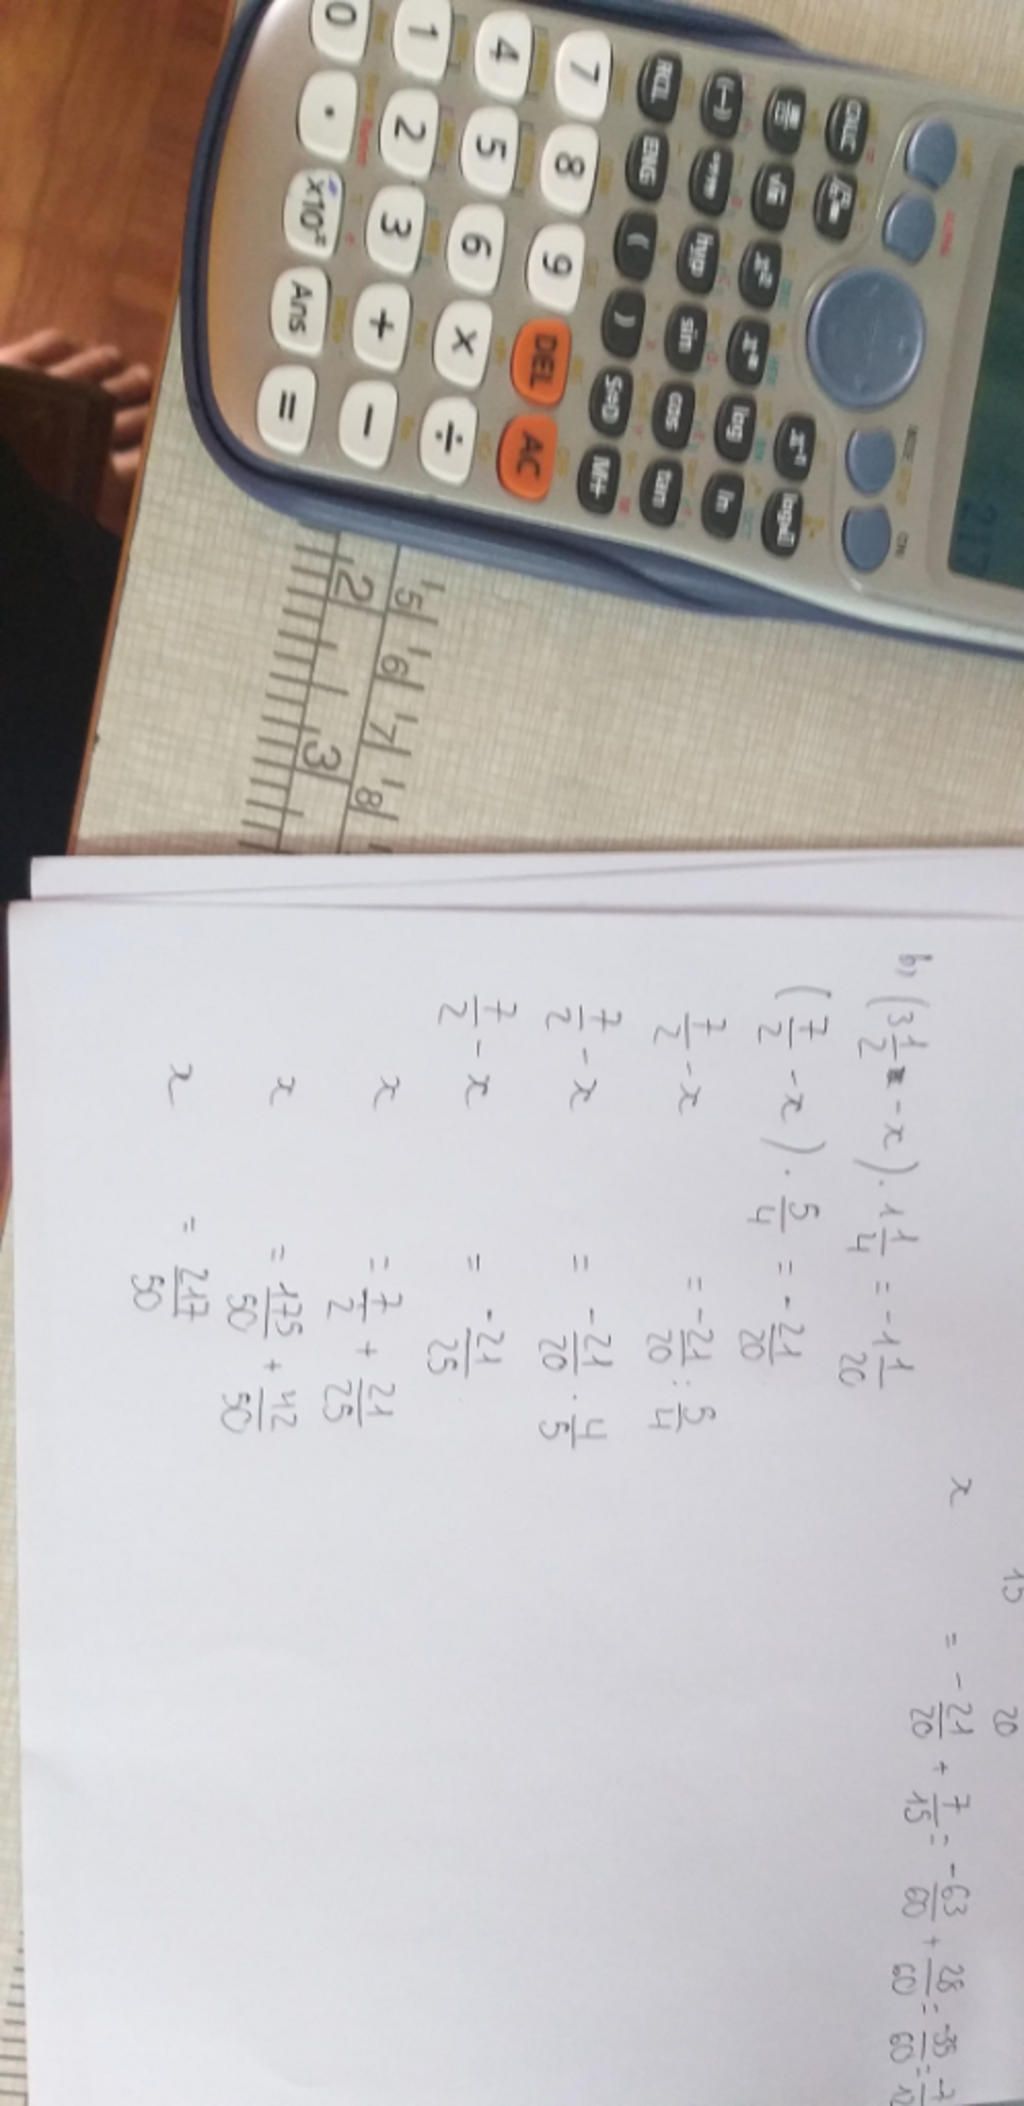 217
CALC
x⁻¹
√
x²
x^■
log
ln
(−)
hyp
sin
cos
tan
RCL
ENG
(
)
S⇔D
M+
7 8 9 DEL AC
4 5 6 × ÷
1 2 3 + −
0 . ×10ˣ Ans =
5 6 7 8
2 3
15 20
x = -21/20 + 7/15 = -63/60 + 28/60 = -35/60 = -7/12
b, (3 1/2 - x) . 1 1/4 = -1 1/20
(7/2 - x) . 5/4 = -21/20
7/2 - x = -21/20 : 5/4
7/2 - x = -21/20 . 4/5
7/2 - x = -21/25
x = 7/2 + 21/25
x = 175/50 + 42/50
x = 217/50